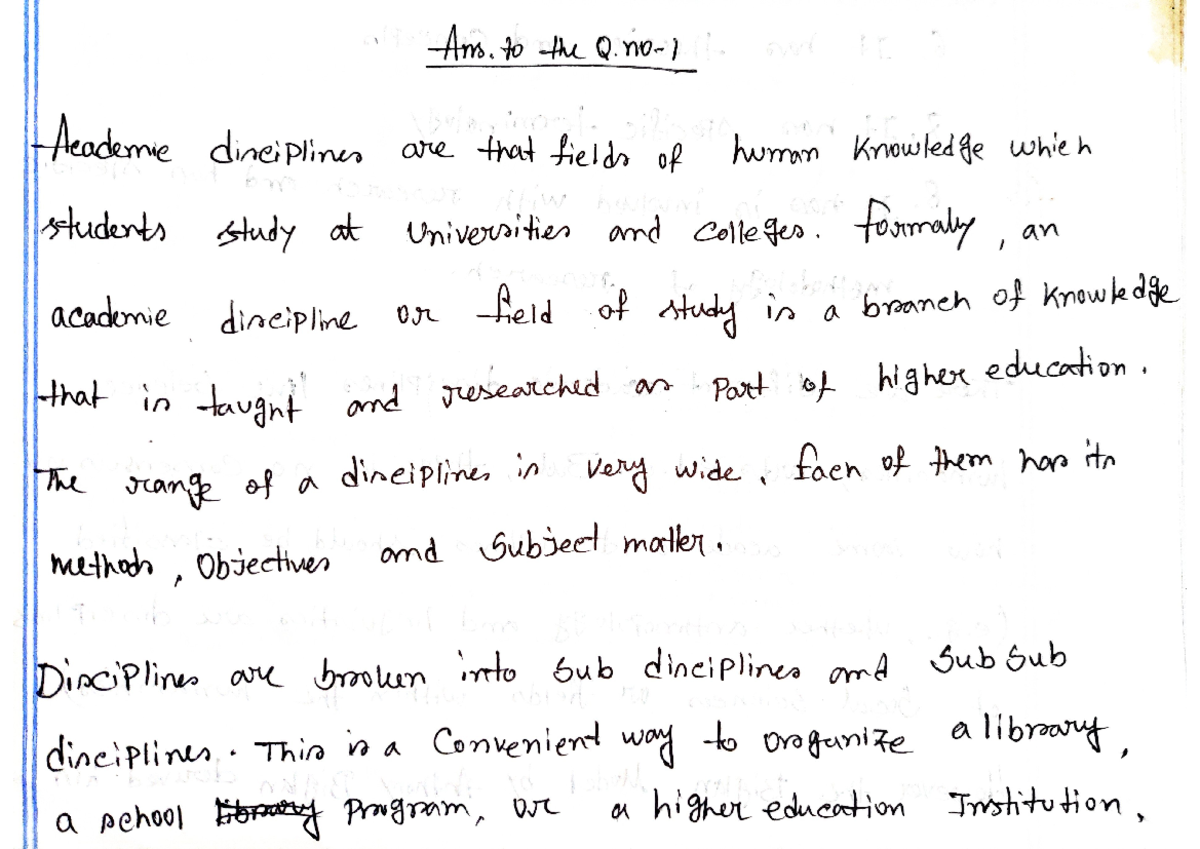 Ans. to the Q. no-1
Academic disciplines are that fields of human Knowledge which
students study at Universities and Colleges. Formaly, an
academic discipline or field of study is a branch of Knowledge
that is taught and researched as Part of higher education.
The range of a disciplines is very wide. Each of them has its
methods, Objectives and Subject matter.
Disciplines are broken into Sub disciplines and Sub Sub
disciplines. This is a Convenient way to organize a library,
a school library Program, or a higher education Institution.